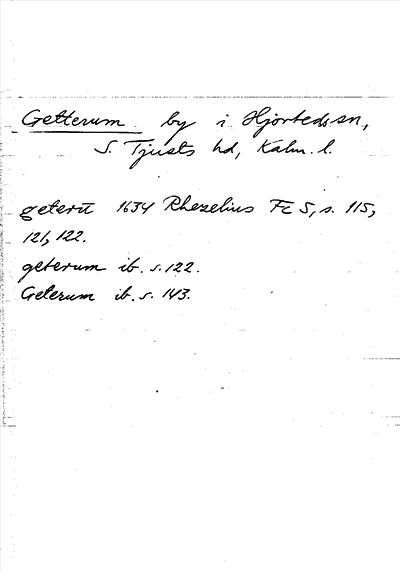 Getterum by i Hjorteds sn,
S. Tjusts hd, Kalm. l.
geterū 1634 Rhezelius Fc 5, s. 115,
121, 122.
geterum ib. s. 122.
Geterum ib. s. 143.